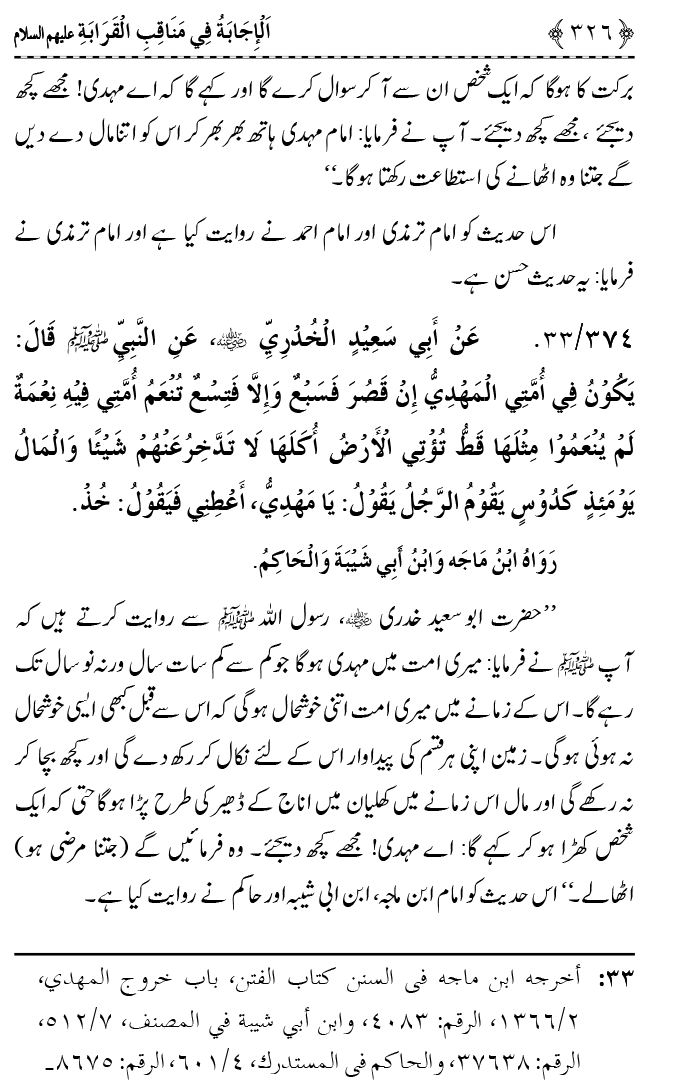 ﴿۳۲۶﴾ اَلْإِجَابَةُ فِي مَنَاقِبِ الْقَرَابَةِ عليهم السلام
برکت کا ہوگا کہ ایک شخص ان سے آ کر سوال کرے گا اور کہے گا کہ اے مہدی! مجھے کچھ
دیجئے، مجھے کچھ دیجئے۔ آپ نے فرمایا: امام مہدی ہاتھ بھر بھر کر اس کو اتنا مال دے دیں
گے جتنا وہ اٹھانے کی استطاعت رکھتا ہوگا۔‘‘
اس حدیث کو امام ترمذی اور امام احمد نے روایت کیا ہے اور امام ترمذی نے
فرمایا: یہ حدیث حسن ہے۔
۳۳/۳۷۴. عَنْ أَبِي سَعِيْدٍ الْخُدْرِيِّ رضی اللہ عنہ، عَنِ النَّبِيِّ ﷺ قَالَ:
يَكُوْنُ فِي أُمَّتِي الْمَهْدِيُّ إِنْ قَصُرَ فَسَبْعٌ وَإِلَّا فَتِسْعٌ تُنْعَمُ أُمَّتِي فِيْهِ نِعْمَةٌ
لَمْ يُنْعَمُوْا مِثْلَهَا قَطُّ تُؤْتِي الْأَرْضُ أُكَلَهَا لَا تَدَّخِرُ عَنْهُمْ شَيْئًا وَالْمَالُ
يَوْمَئِذٍ كَدُوْسٍ يَقُوْمُ الرَّجُلُ يَقُوْلُ: يَا مَهْدِيُّ، أَعْطِنِي فَيَقُوْلُ: خُذْ.
رَوَاهُ ابْنُ مَاجَه وَابْنُ أَبِي شَيْبَةَ وَالْحَاكِمُ.
’’حضرت ابو سعید خدری رضی اللہ عنہ، رسول اللہ ﷺ سے روایت کرتے ہیں کہ
آپ ﷺ نے فرمایا: میری امت میں مہدی ہوگا جو کم سے کم سات سال ورنہ نو سال تک
رہے گا۔ اس کے زمانے میں میری امت اتنی خوشحال ہوگی کہ اس سے قبل کبھی ایسی خوشحال
نہ ہوئی ہوگی۔ زمین اپنی ہر قسم کی پیداوار اس کے لئے نکال کر رکھ دے گی اور کچھ بچا کر
نہ رکھے گی اور مال اس زمانے میں کھلیان میں اناج کے ڈھیر کی طرح پڑا ہوگا حتی کہ ایک
شخص کھڑا ہو کر کہے گا: اے مہدی! مجھے کچھ دیجئے۔ وہ فرمائیں گے (جتنا مرضی ہو)
اٹھا لے۔‘‘ اس حدیث کو امام ابن ماجہ، ابن ابی شیبہ اور حاکم نے روایت کیا ہے۔
۳۳: أخرجه ابن ماجه فى السنن كتاب الفتن، باب خروج المهدي،
۱۳٦٦/۲، الرقم: ٤٠٨٣، وابن أبي شيبة في المصنف، ٥١٢/٧،
الرقم: ٣٧٦٣٨، والحاكم فى المستدرك، ٦٠١/٤، الرقم: ٨٦٧٥ـ